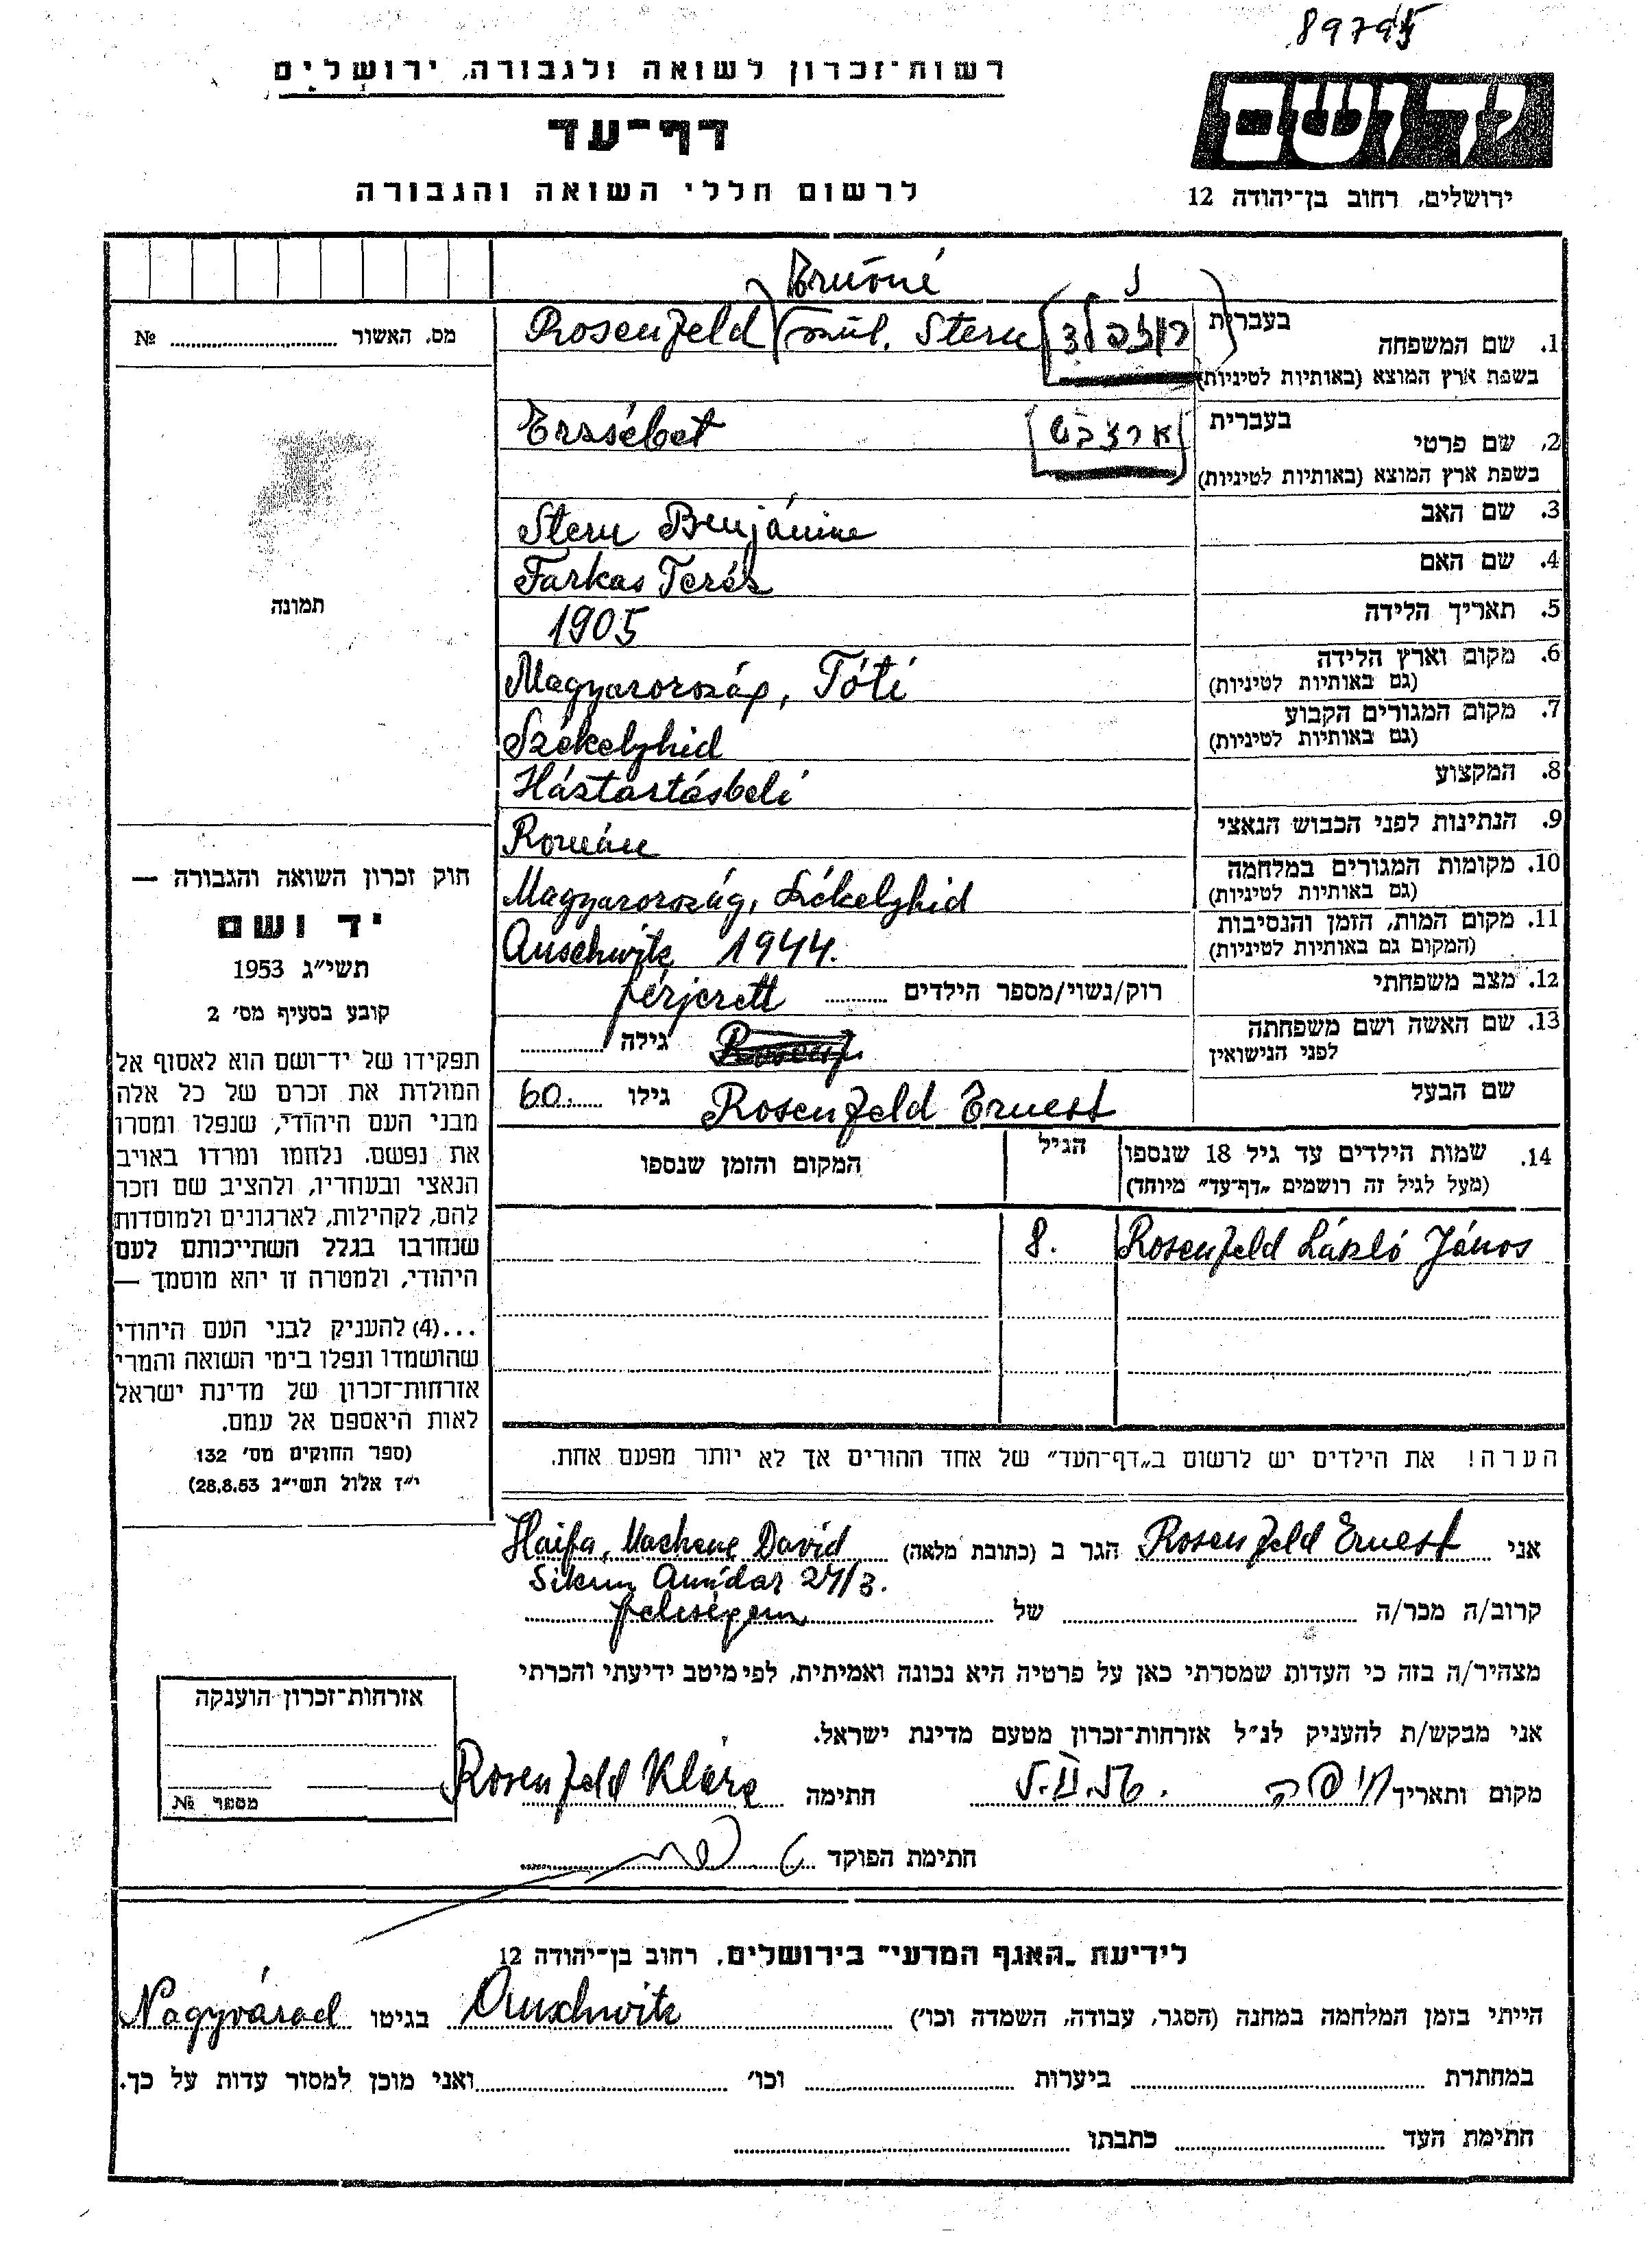 89795
רשות־זכרון לשואה ולגבורה, ירושלים
דף־עד
לרשום חללי השואה והגבורה
יד ושם
ירושלים, רחוב בן־יהודה 12
Ernőné
Rosenfeld szül. Stern רוזנפלד
1. שם המשפחה בעברית
בשפת ארץ המוצא (באותיות לטיניות)
Erzsébet ארצבט
2. שם פרטי בעברית
בשפת ארץ המוצא (באותיות לטיניות)
3. שם האב Stern Benjámine
4. שם האם Farkas Teréz
5. תאריך הלידה 1905
6. מקום וארץ הלידה Magyarország, Tóti
(גם באותיות לטיניות)
7. מקום המגורים הקבוע Székelyhid
(גם באותיות לטיניות)
8. המקצוע Háztartásbeli
9. הנתינות לפני הכבוש הנאצי Román
10. מקומות המגורים במלחמה Magyarország, Székelyhid
(גם באותיות לטיניות)
11. מקום המות, הזמן והנסיבות Auschwitz 1944.
(המקום גם באותיות לטיניות)
12. מצב משפחתי רוק/נשוי/מספר הילדים férjezett
13. שם האשה ושם משפחתה גילה
לפני הנישואין
שם הבעל Rosenfeld Ernest גילו 60.
14. שמות הילדים עד גיל 18 שנספו הגיל המקום והזמן שנספו
(מעל לגיל זה רושמים „דף־עד” מיוחד)
Rosenfeld László János 8.
הערה! את הילדים יש לרשום ב„דף־העד” של אחד ההורים אך לא יותר מפעם אחת.
מס. האשור № 
תמונה
חוק זכרון השואה והגבורה —
יד ושם
תשי״ג 1953
קובע בסעיף מס׳ 2
תפקידו של יד־ושם הוא לאסוף אל
המולדת את זכרם של כל אלה
מבני העם היהודי, שנפלו ומסרו
את נפשם. נלחמו ומרדו באויב
הנאצי ובעחריו, ולהציב שם וזכר
להם, לקהילות, לארגונים ולמוסדות
שנחרבו בגלל השתייכותם לעם
היהודי, ולמטרה זו יהא מוסמך —
...(4) להעניק לבני העם היהודי
שהושמדו ונפלו בימי השואה והמרי
אזרחות־זכרון של מדינת ישראל
לאות היאספם אל עמם.
(ספר החוקים מס׳ 132
י״ז אלול תשי״ג 28.8.53)
אני Rosenfeld Ernest הגר ב (כתובת מלאה) Haifa, Machane David
Sikun Amidar 27/3.
קרוב/ה מכר/ה של feleségem
מצהיר/ה בזה כי העדות שמסרתי כאן על פרטיה היא נכונה ואמיתית, לפי מיטב ידיעתי והכרתי
אני מבקש/ת להעניק לנ״ל אזרחות־זכרון מטעם מדינת ישראל.
מקום ותאריך חיפה חתימה Rosenfeld Klára
חתימת הפוקד
אזרחות־זכרון הוענקה
מספר №
לידיעת „האגף המדעי” בירושלים, רחוב בן־יהודה 12
הייתי בזמן המלחמה במחנה (הסגר, עבודה, השמדה וכו׳) Auschwitz בגיטו Nagyvárad
במחתרת ביערות וכו׳ ואני מוכן למסור עדות על כך.
חתימת העד כתבתו